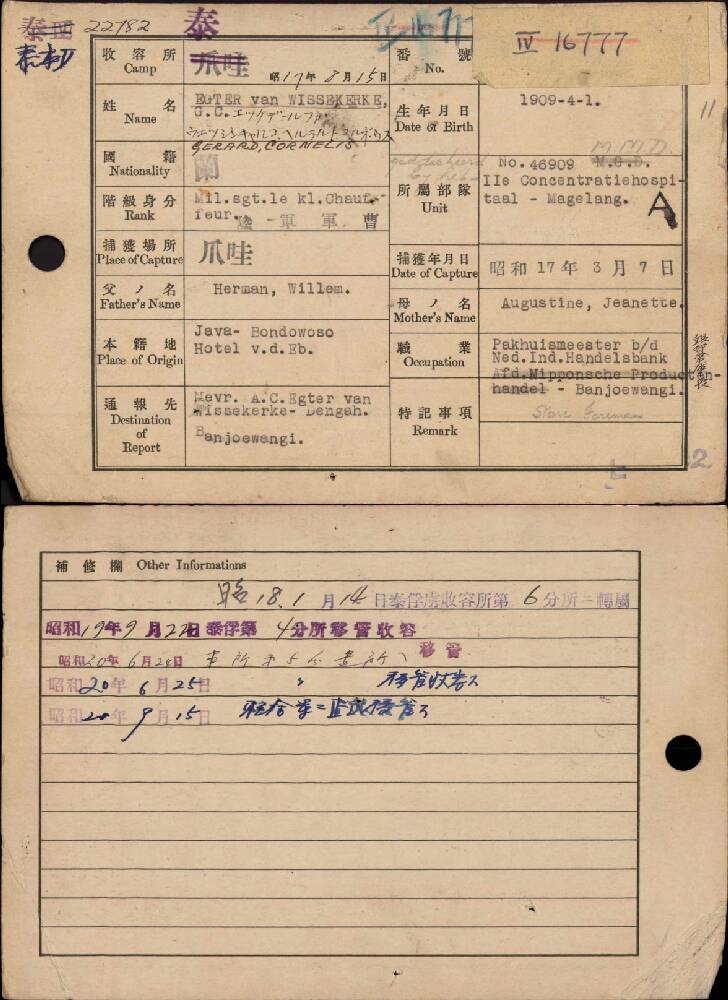 泰 22782 泰
IV 16777
收容所 Camp 爪哇 昭17年8月15日
番號 No. IV 16777
姓名 Name EGTER van WISSEKERKE,
G.C.
GERARD, CORNELIS
生年月日 Date of Birth 1909-4-1.
國籍 Nationality 蘭
M.M.D.
No.46909 M.G.D.
所屬部隊 Unit IIe Concentratiehospi-
taal - Magelang. A
階級身分 Rank Mil.sgt.1e kl.Chauf-
feur. 陸軍軍曹
捕獲場所 Place of Capture 爪哇
捕獲年月日 Date of Capture 昭和17年3月7日
父ノ名 Father's Name Herman, Willem.
母ノ名 Mother's Name Augustine, Jeanette.
本籍地 Place of Origin Java- Bondowoso
Hotel v.d.Eb.
職業 Occupation Pakhuismeester b/d
Ned.Ind.Handelsbank
Afd.Nipponsche Producten-
handel - Banjoewangi.
通報先 Destination of Report Mevr. A.C.Egter van
Wissekerke- Dengah.
Banjoewangi.
特記事項 Remark Store Foreman
補修欄 Other Informations
昭18.1月14日泰俘虜收容所第6分所ニ轉屬
昭和19年9月22日泰俘第4分所移管收容
昭和20年6月24日 移管
昭和20年6月25日
昭和20年9月15日